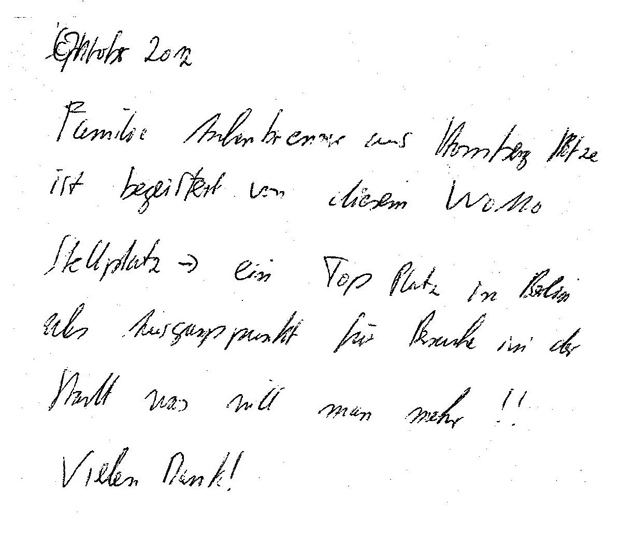 Oktober 2012
Familie aus
ist begeistert von diesem WoMo
Stellplatz → ein Top Platz in Berlin
als Ausgangspunkt für Besuche in der
Stadt was will man mehr !!
Vielen Dank!